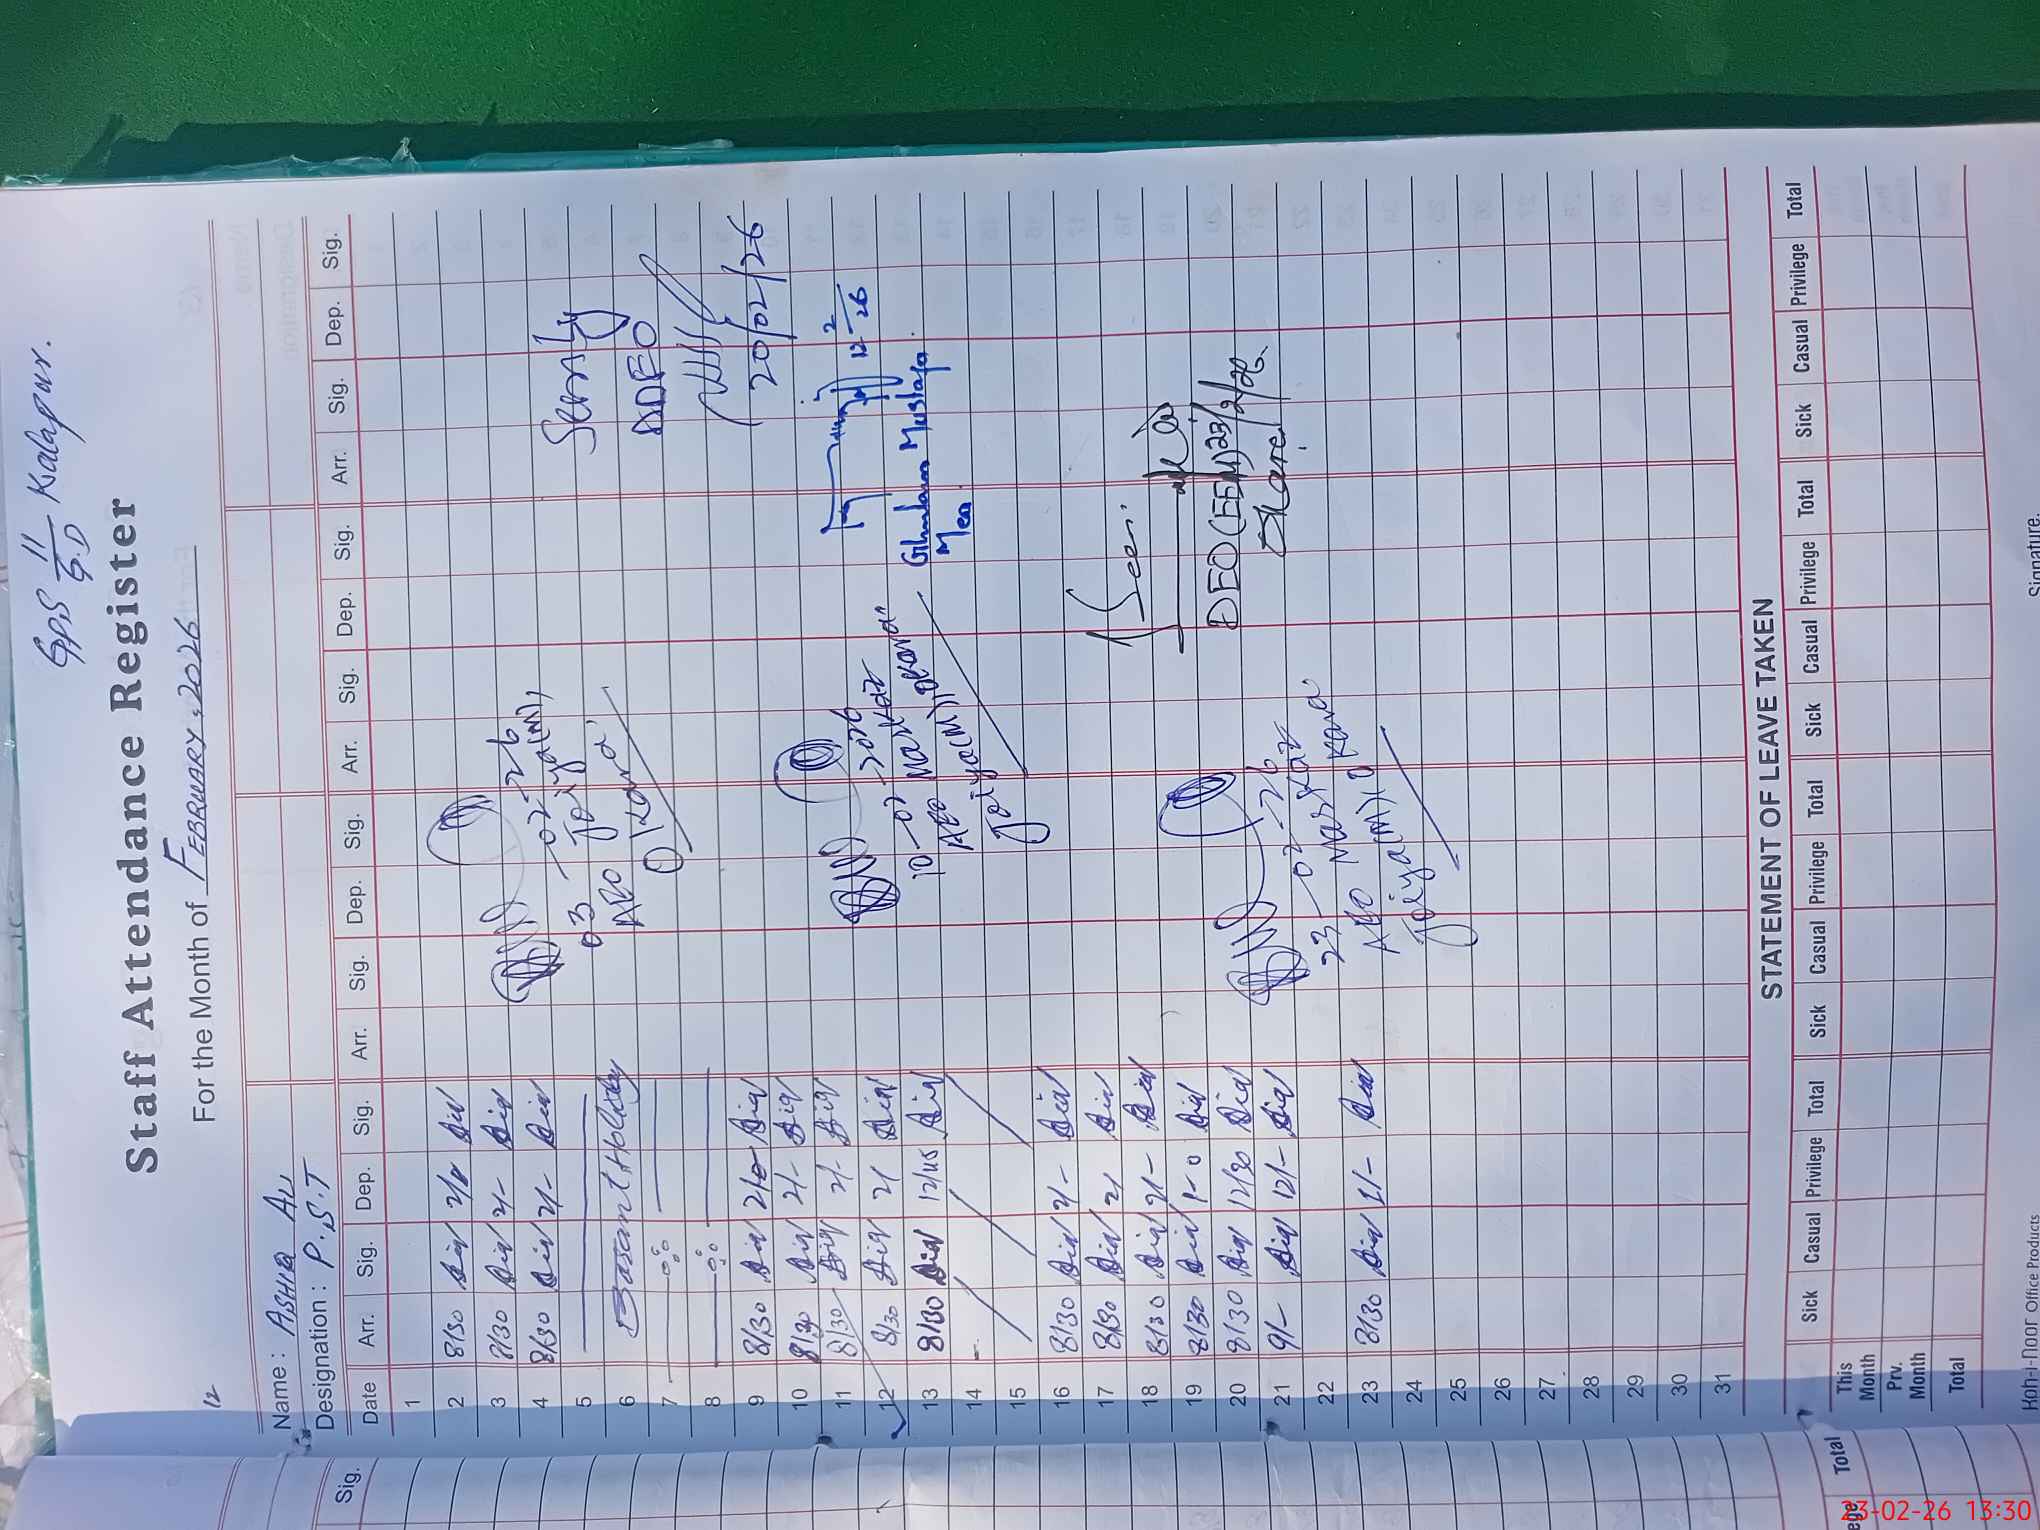 GPS 11/G.D Kalapur.
Staff Attendance Register
12
For the Month of FEBRUARY, 2026
Name: ASHIQ ALI
Designation: P.S.T
Date Arr. Sig. Dep. Sig. Arr. Sig. Dep. Sig. Arr. Sig. Dep. Sig. Arr. Sig. Dep. Sig.
1
2 8/30 2/-
3 8/30 2/-
4 8/30 2/-
5
6 Basant Holiday
7
8
9 8/30
10 8/30 2/-
11 8/30 2/-
12 8/30 2/
13 8/30 12/45
14
15
16 8/30 2/-
17 8/30 2/
18 8/30 2/-
19 8/30
20 8/30 12/30
21 9/- 12/-
22
23 8/30 2/-
24
25
26
27
28
29
30
31
03-02-26
AEO Joiya(M)
Okara
10-02-2026
AEO Markaz
Joiya(M) Okara
23-02-26
AEO Markaz
Joiya(M) Okara
DDEO
20/02/26
12 2/26
Ghulam Mustafa
Mea
Seen
DEO (EEM) 23/2/26
Okara
STATEMENT OF LEAVE TAKEN
Sick Casual Privilege Total Sick Casual Privilege Total Sick Casual Privilege Total Sick Casual Privilege Total
This Month
Prv. Month
Total
Koh-i-noor Office Products
Signature.
Sig.
Total
23-02-26 13:30